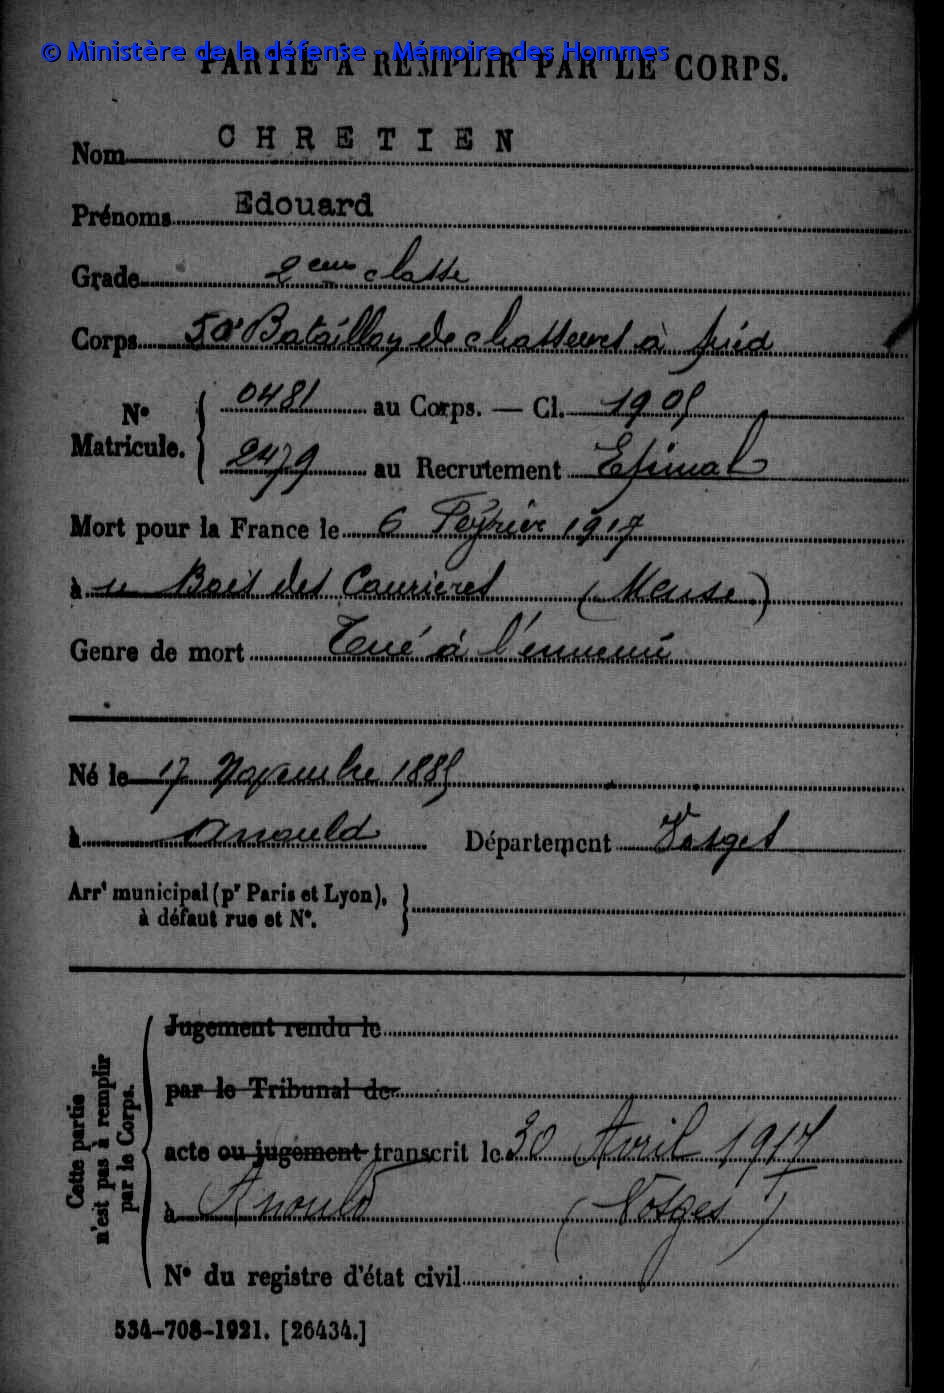 © Ministère de la défense - Mémoire des Hommes
PARTIE À REMPLIR PAR LE CORPS.
Nom CHRETIEN
Prénoms Edouard
Grade 2eme classe
Corps Bataillon de chasseurs à pied
N° Matricule. 0481 au Corps. — Cl. 1905
2479 au Recrutement Epinal
Mort pour la France le 6 Février 1917
à Bois des Caurieres (Meuse)
Genre de mort Tué à l'ennemi
Né le 17 Novembre 1885
à Anould Département Vosges
Arrt municipal (pr Paris et Lyon),
à défaut rue et N°.
Cette partie
n'est pas à remplir
par le Corps.
Jugement rendu le
par le Tribunal de
acte ou jugement transcrit le 30 Avril 1917
à Anould (Vosges)
N° du registre d'état civil
534-708-1921. [26434.]